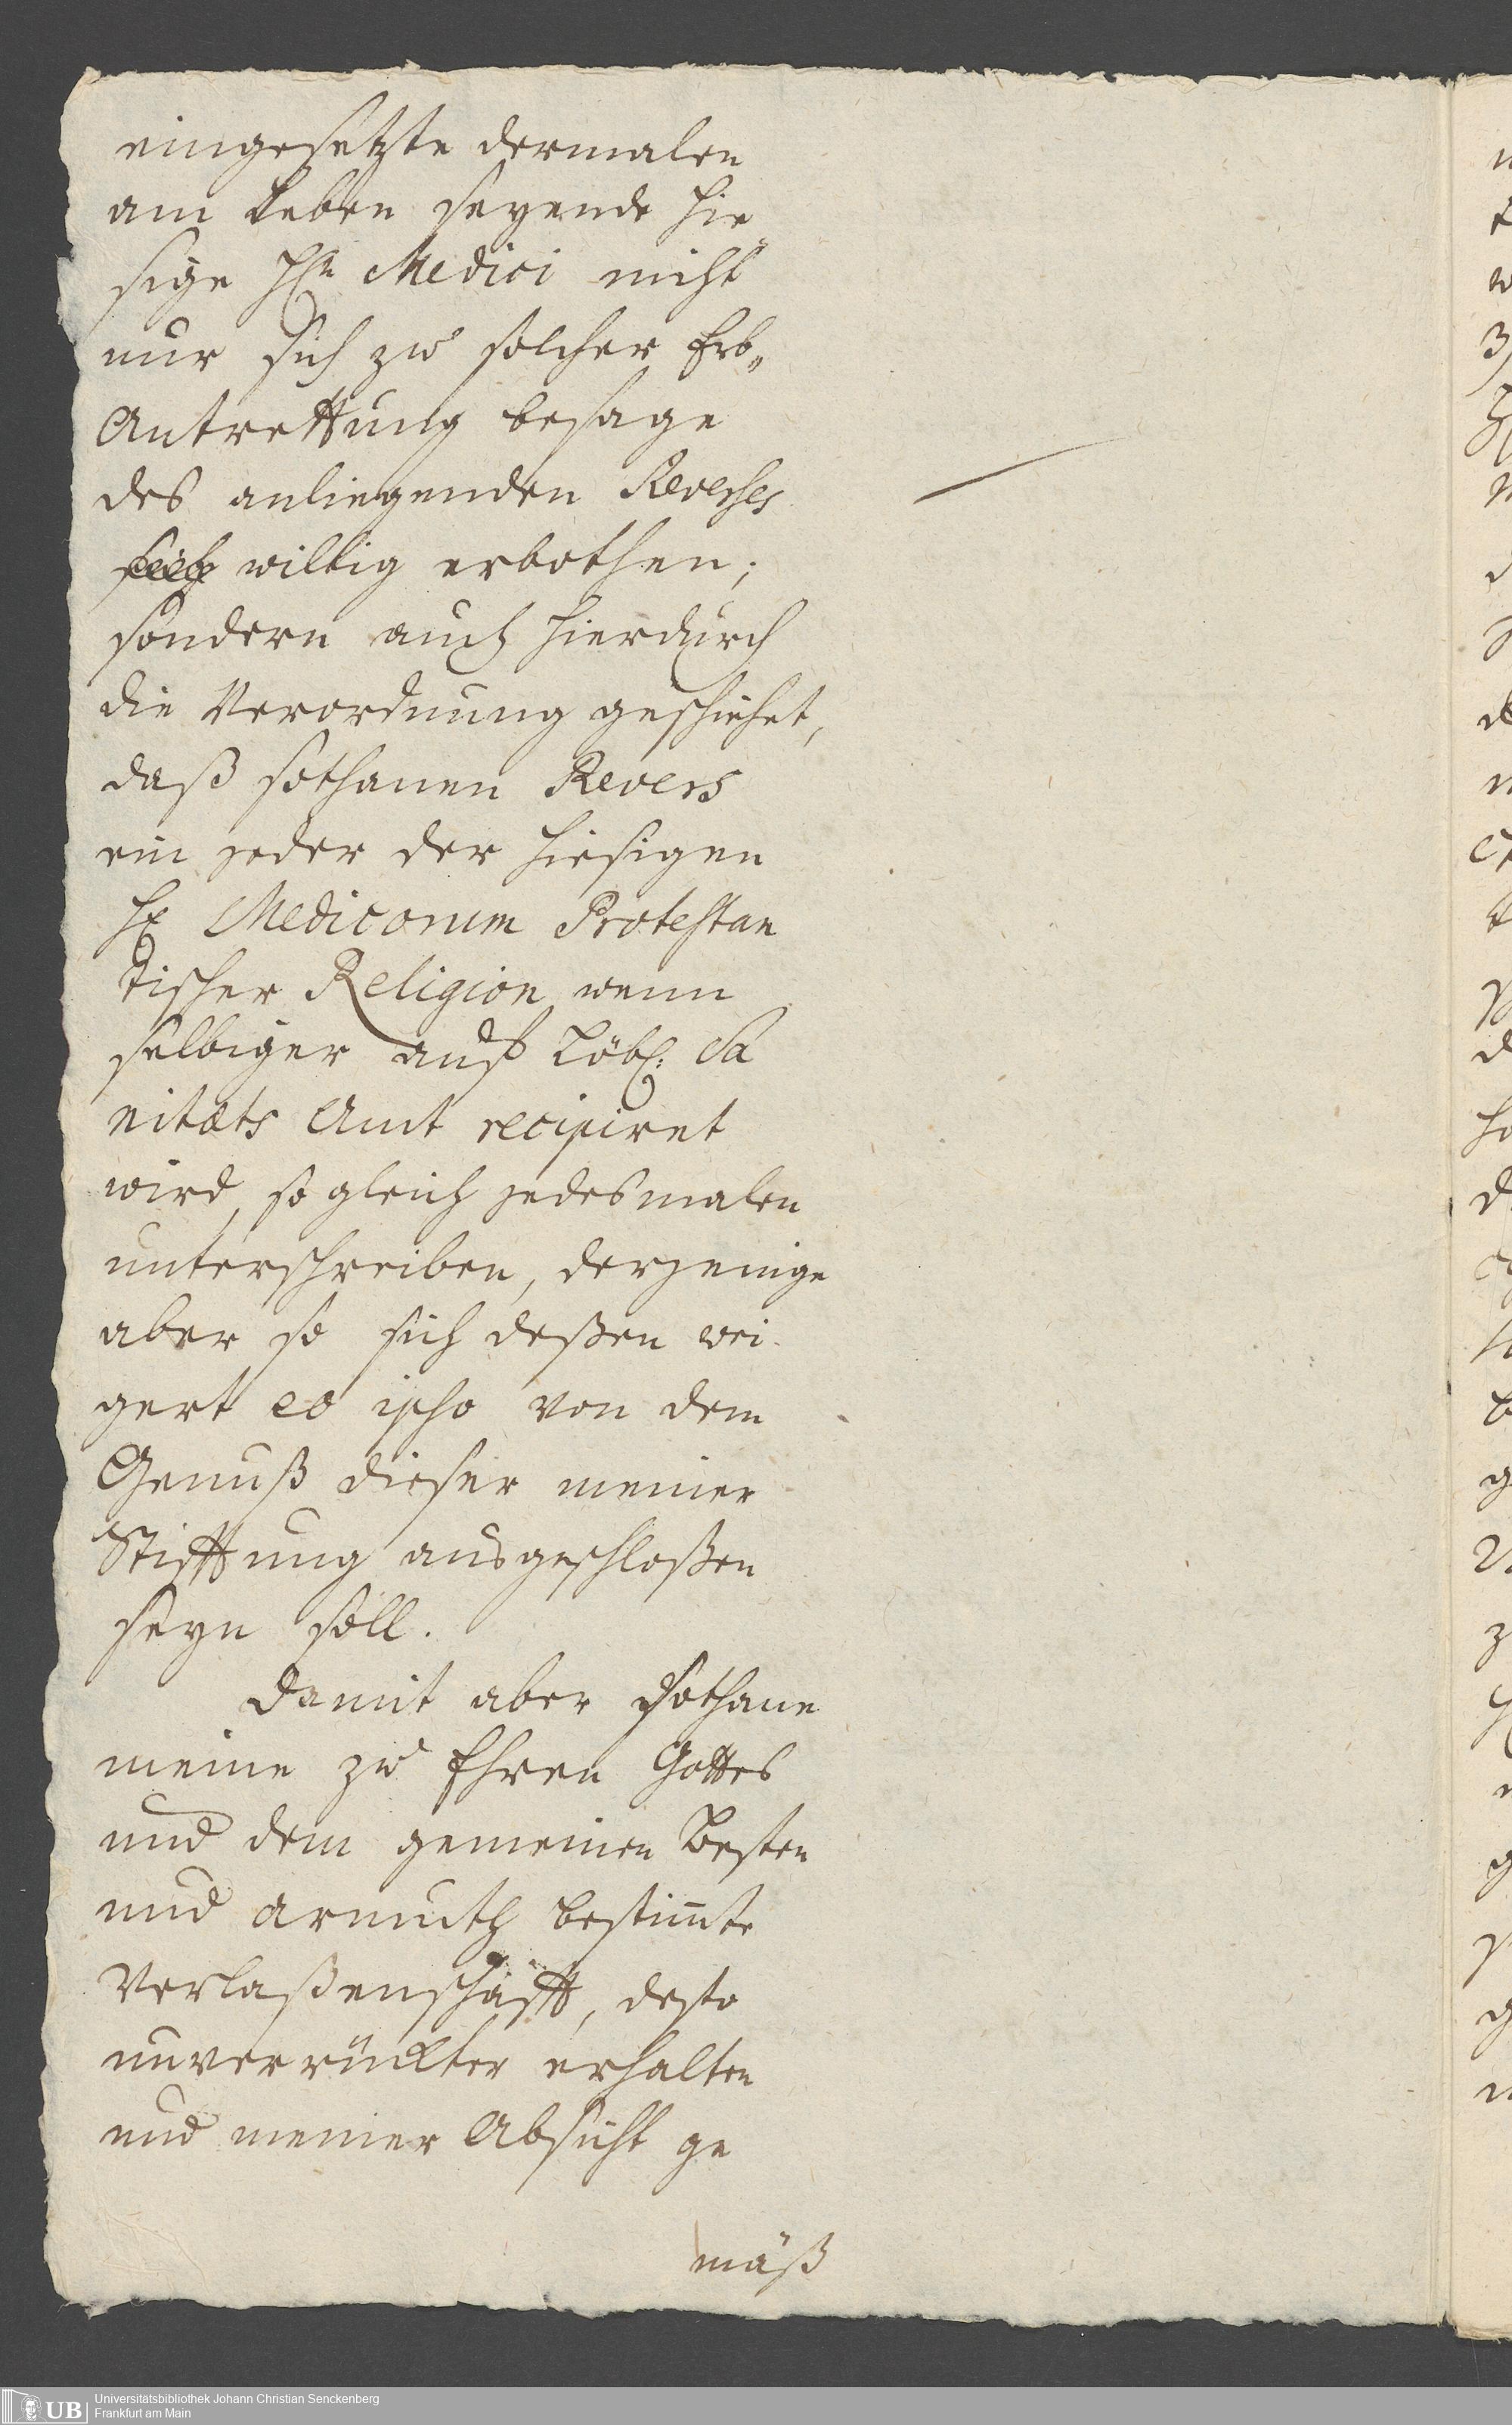 eingesetzte dermalen
am Leben seyende hie„
sige Hln Medici nicht
nur sich zu solcher Erb„
Antrettung besage
des anliegenden Reverses
willig erbothen;
sondern auch hierdurch
die Verordnung geschiehet,
daß sothanen Revers
ein jeder der hiesigen
H Medicorum Protestan
tischer Religion wenn
selbiger auf Löbl: Sa
nitæts Amt recipiret
wird, so gleich jedesmalen
unterschreiben, derjenige
aber so sich deßen wei-
gert eo ipso von dem
Genuß dieser meiner
Stifftung ausgeschloßen
seyn soll.
Damit aber sothane
meine zu Ehren Gottes
und dem gemeinen Besten
und armuth bestim̅te
Verlaßenschafft, desto
unverrückter erhalten
und meiner Absicht ge
mäß
Universitätsbibliothek Johann Christian Senckenberg
Frankfurt am Main
UB